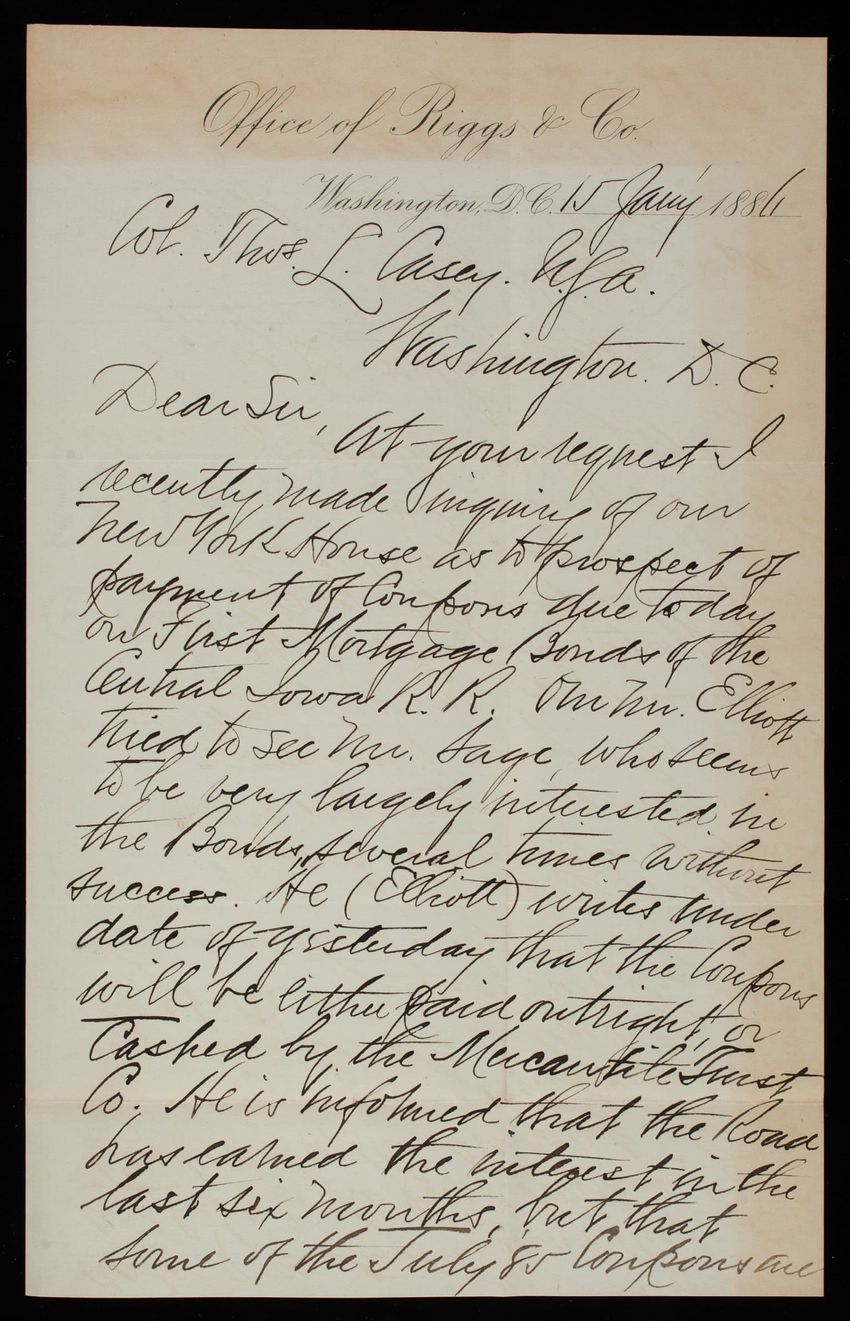 Office of Riggs & Co.
Washington, D.C. 15 Jany 1886
Col. Thos. L. Casey. U.S.A.
Washington. D. C.
Dear Sir, At your request I
recently made inquiry of our
New York House as to prospect of
payment of Coupons due today
on First Mortgage Bonds of the
Central Iowa R. R. Our Mr. Elliott
tried to see Mr. Sage, who seems
to be very largely interested in
the Bonds, several times without
success. He (Elliott) writes under
date of yesterday that the Coupons
will be either paid outright, or
Cashed by the Mercantile Trust
Co. He is informed that the Road
has earned the interest in the
last six months, but that
some of the July 85 Coupons are